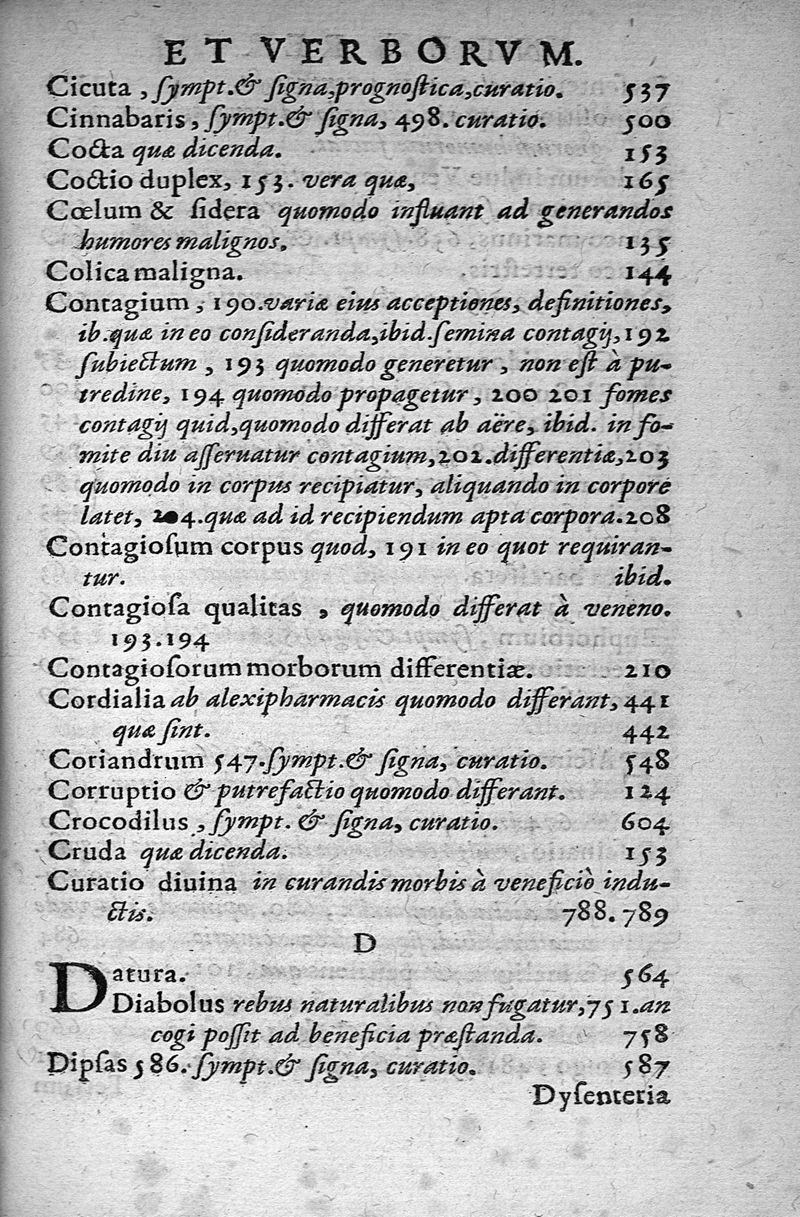 ET VERBORVM.
Cicuta, ſympt.& ſigna,prognoſtica,curatio. 537
Cinnabaris, ſympt.& ſigna, 498. curatio. 500
Cocta quæ dicenda. 153
Coctio duplex, 153. vera quæ, 165
Cœlum & ſidera quomodo influant ad generandos
humores malignos. 135
Colica maligna. 144
Contagium, 190.variæ eius acceptiones, definitiones,
ib.quæ in eo conſideranda,ibid.ſemina contagij,192
ſubiectum, 193 quomodo generetur, non eſt à pu-
tredine, 194 quomodo propagetur, 200 201 fomes
contagij quid,quomodo differat ab aëre, ibid. in fo-
mite diu aſſeruatur contagium,202.differentiæ,203
quomodo in corpus recipiatur, aliquando in corpore
latet, 204.quæ ad id recipiendum apta corpora.208
Contagioſum corpus quod, 191 in eo quot requiran-
tur. ibid.
Contagioſa qualitas, quomodo differat à veneno.
193.194
Contagioſorum morborum differentiæ. 210
Cordialia ab alexipharmacis quomodo differant, 441
quæ ſint. 442
Coriandrum 547.ſympt.& ſigna, curatio. 548
Corruptio & putrefactio quomodo differant. 124
Crocodilus, ſympt. & ſigna, curatio. 604
Cruda quæ dicenda. 153
Curatio diuina in curandis morbis à veneficiò indu-
ctis. 788.789
D
Datura. 564
Diabolus rebus naturalibus non fugatur,751.an
cogi poſſit ad beneficia præſtanda. 758
Dipſas 586. ſympt.& ſigna, curatio. 587
Dyſenteria